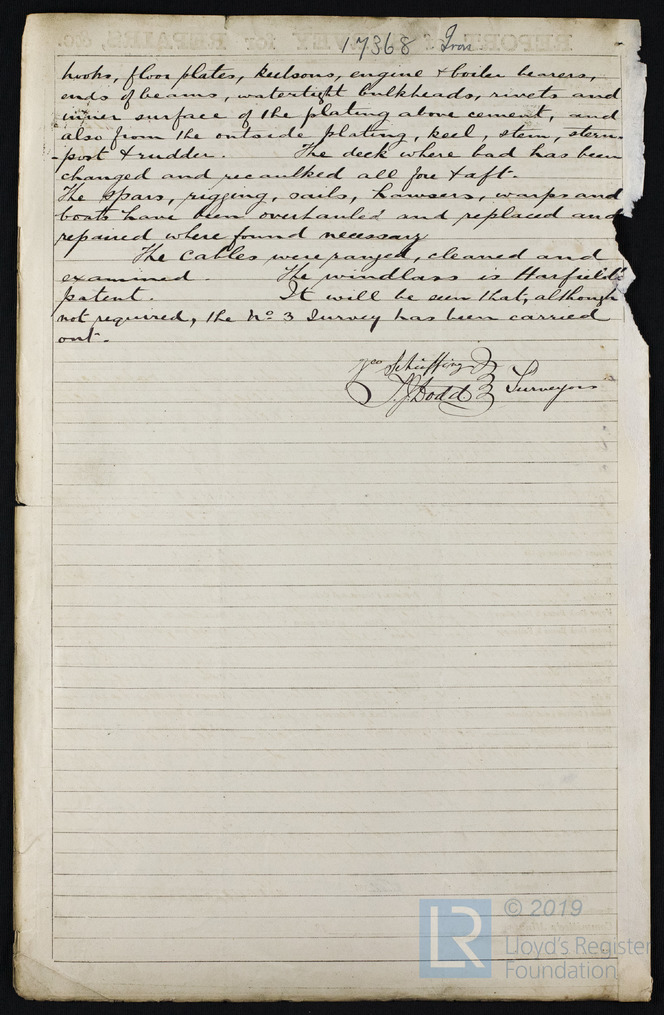 17368 Iron
hooks, floor plates, keelsons, engine & boiler bearers,
ends of beams, watertight bulkheads, rivets and
inner surface of the plating above cement, and
also from the outside plating, keel, stem, stern-
-post & rudder. The deck where bad has been
changed and recaulked all fore & aft.
The spars, rigging, sails, hawsers, warps and
boats have been overhauled and replaced and
repaired where found necessary
The cables were ranged, cleaned and
examined. The windlass is Harfield's
patent. It will be seen that, although
not required, the No 3 Survey has been carried
out.
Geo
T. J. Dodd
Surveyors
© 2019
LR
Lloyd's Register
Foundation